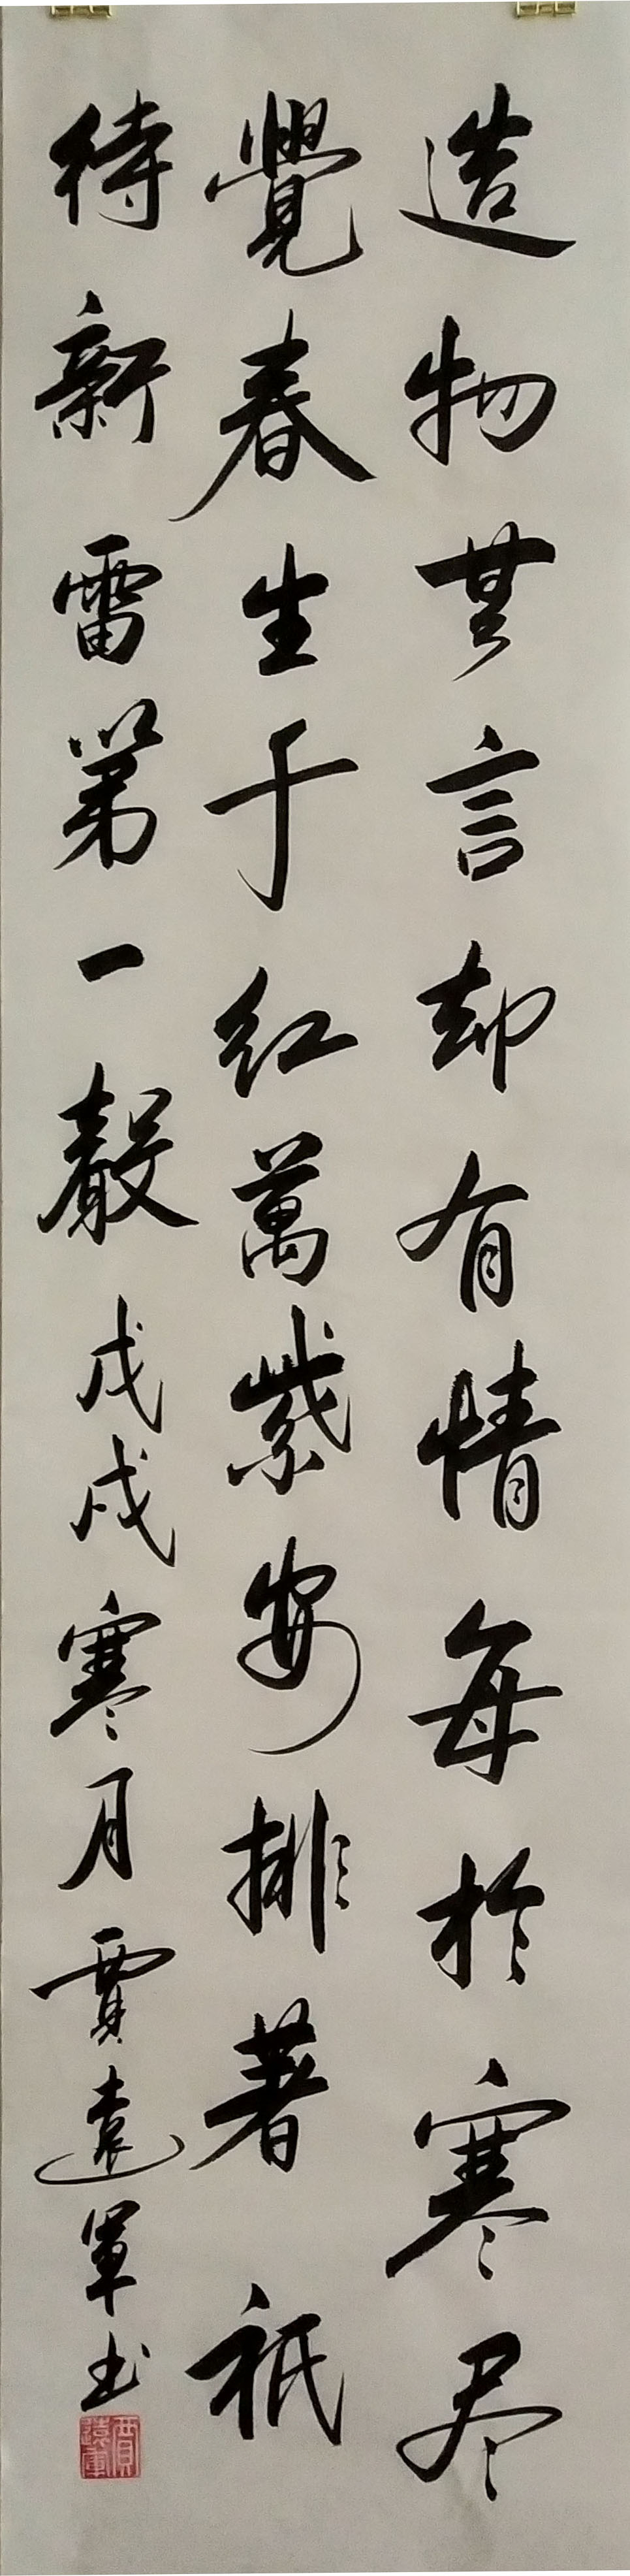 造物無言却有情每於寒尽
覺春生千红萬紫安排著祇
待新雷第一聲戊戌寒月賈遠軍书
賈遠軍